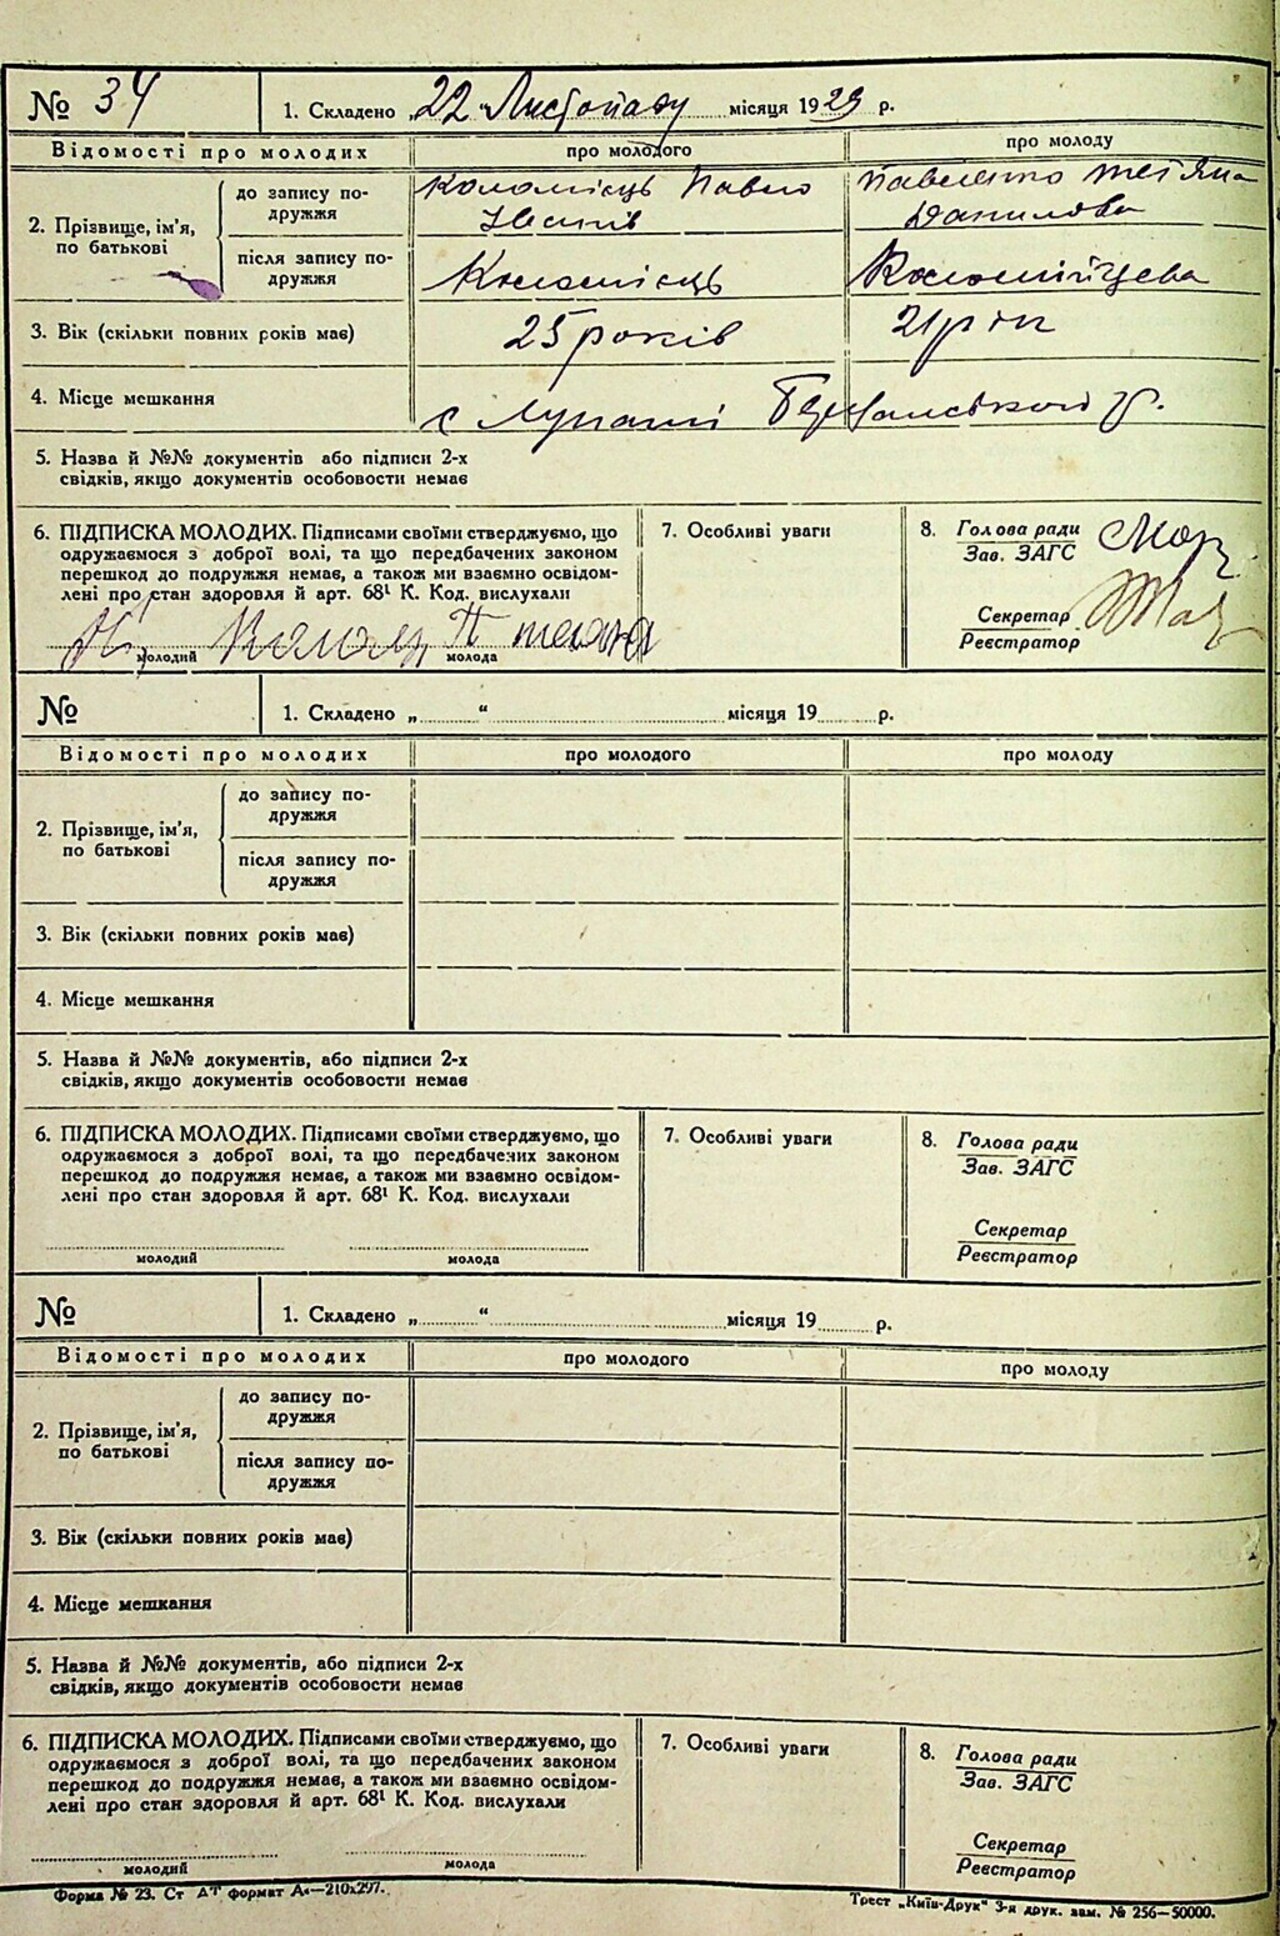 № 34 1. Складено „22“ Листопаду місяця 1929 р.
Відомості про молодих про молодого про молоду
2. Прізвище, ім'я, по батькові
до запису по-
дружжя
Коломієць Павло
Іванів
Павленко Тет'яна
Данилова
після запису по-
дружжя
Коломієць
Коломійцева
3. Вік (скільки повних років має) 25 років 21 рік
4. Місце мешкання с
5. Назва й №№ документів або підписи 2-х
свідків, якщо документів особовости немає
6. ПІДПИСКА МОЛОДИХ. Підписами своїми стверджуємо, що
одружаємося з доброї волі, та що передбачених законом
перешкод до подружжя немає, а також ми взаємно освідом-
лені про стан здоровля й арт. 68¹ К. Код. вислухали
молодий молода
7. Особливі уваги
8. Голова ради
Зав. ЗАГС
Секретар
Реєстратор
№ 1. Складено „ “ місяця 19 р.
Відомості про молодих про молодого про молоду
2. Прізвище, ім'я,
по батькові
до запису по-
дружжя
після запису по-
дружжя
3. Вік (скільки повних років має)
4. Місце мешкання
5. Назва й №№ документів, або підписи 2-х
свідків, якщо документів особовости немає
6. ПІДПИСКА МОЛОДИХ. Підписами своїми стверджуємо, що
одружаємося з доброї волі, та що передбачених законом
перешкод до подружжя немає, а також ми взаємно освідом-
лені про стан здоровля й арт. 68¹ К. Код. вислухали
молодий молода
7. Особливі уваги
8. Голова ради
Зав. ЗАГС
Секретар
Реєстратор
№ 1. Складено „ “ місяця 19 р.
Відомості про молодих про молодого про молоду
2. Прізвище, ім'я,
по батькові
до запису по-
дружжя
після запису по-
дружжя
3. Вік (скільки повних років має)
4. Місце мешкання
5. Назва й №№ документів, або підписи 2-х
свідків, якщо документів особовости немає
6. ПІДПИСКА МОЛОДИХ. Підписами своїми стверджуємо, що
одружаємося з доброї волі, та що передбачених законом
перешкод до подружжя немає, а також ми взаємно освідом-
лені про стан здоровля й арт. 68¹ К. Код. вислухали
молодий молода
7. Особливі уваги
8. Голова ради
Зав. ЗАГС
Секретар
Реєстратор
Форма № 23. Ст АТ формат А₄—210х297.
Трест „Київ-Друк“ 3-я друк. зам. № 256—50000.